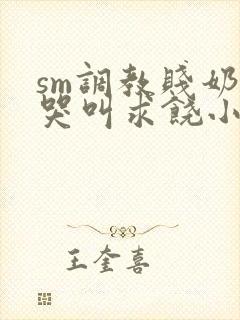 sm調教賤奶
哭叫求饒小
王奎喜